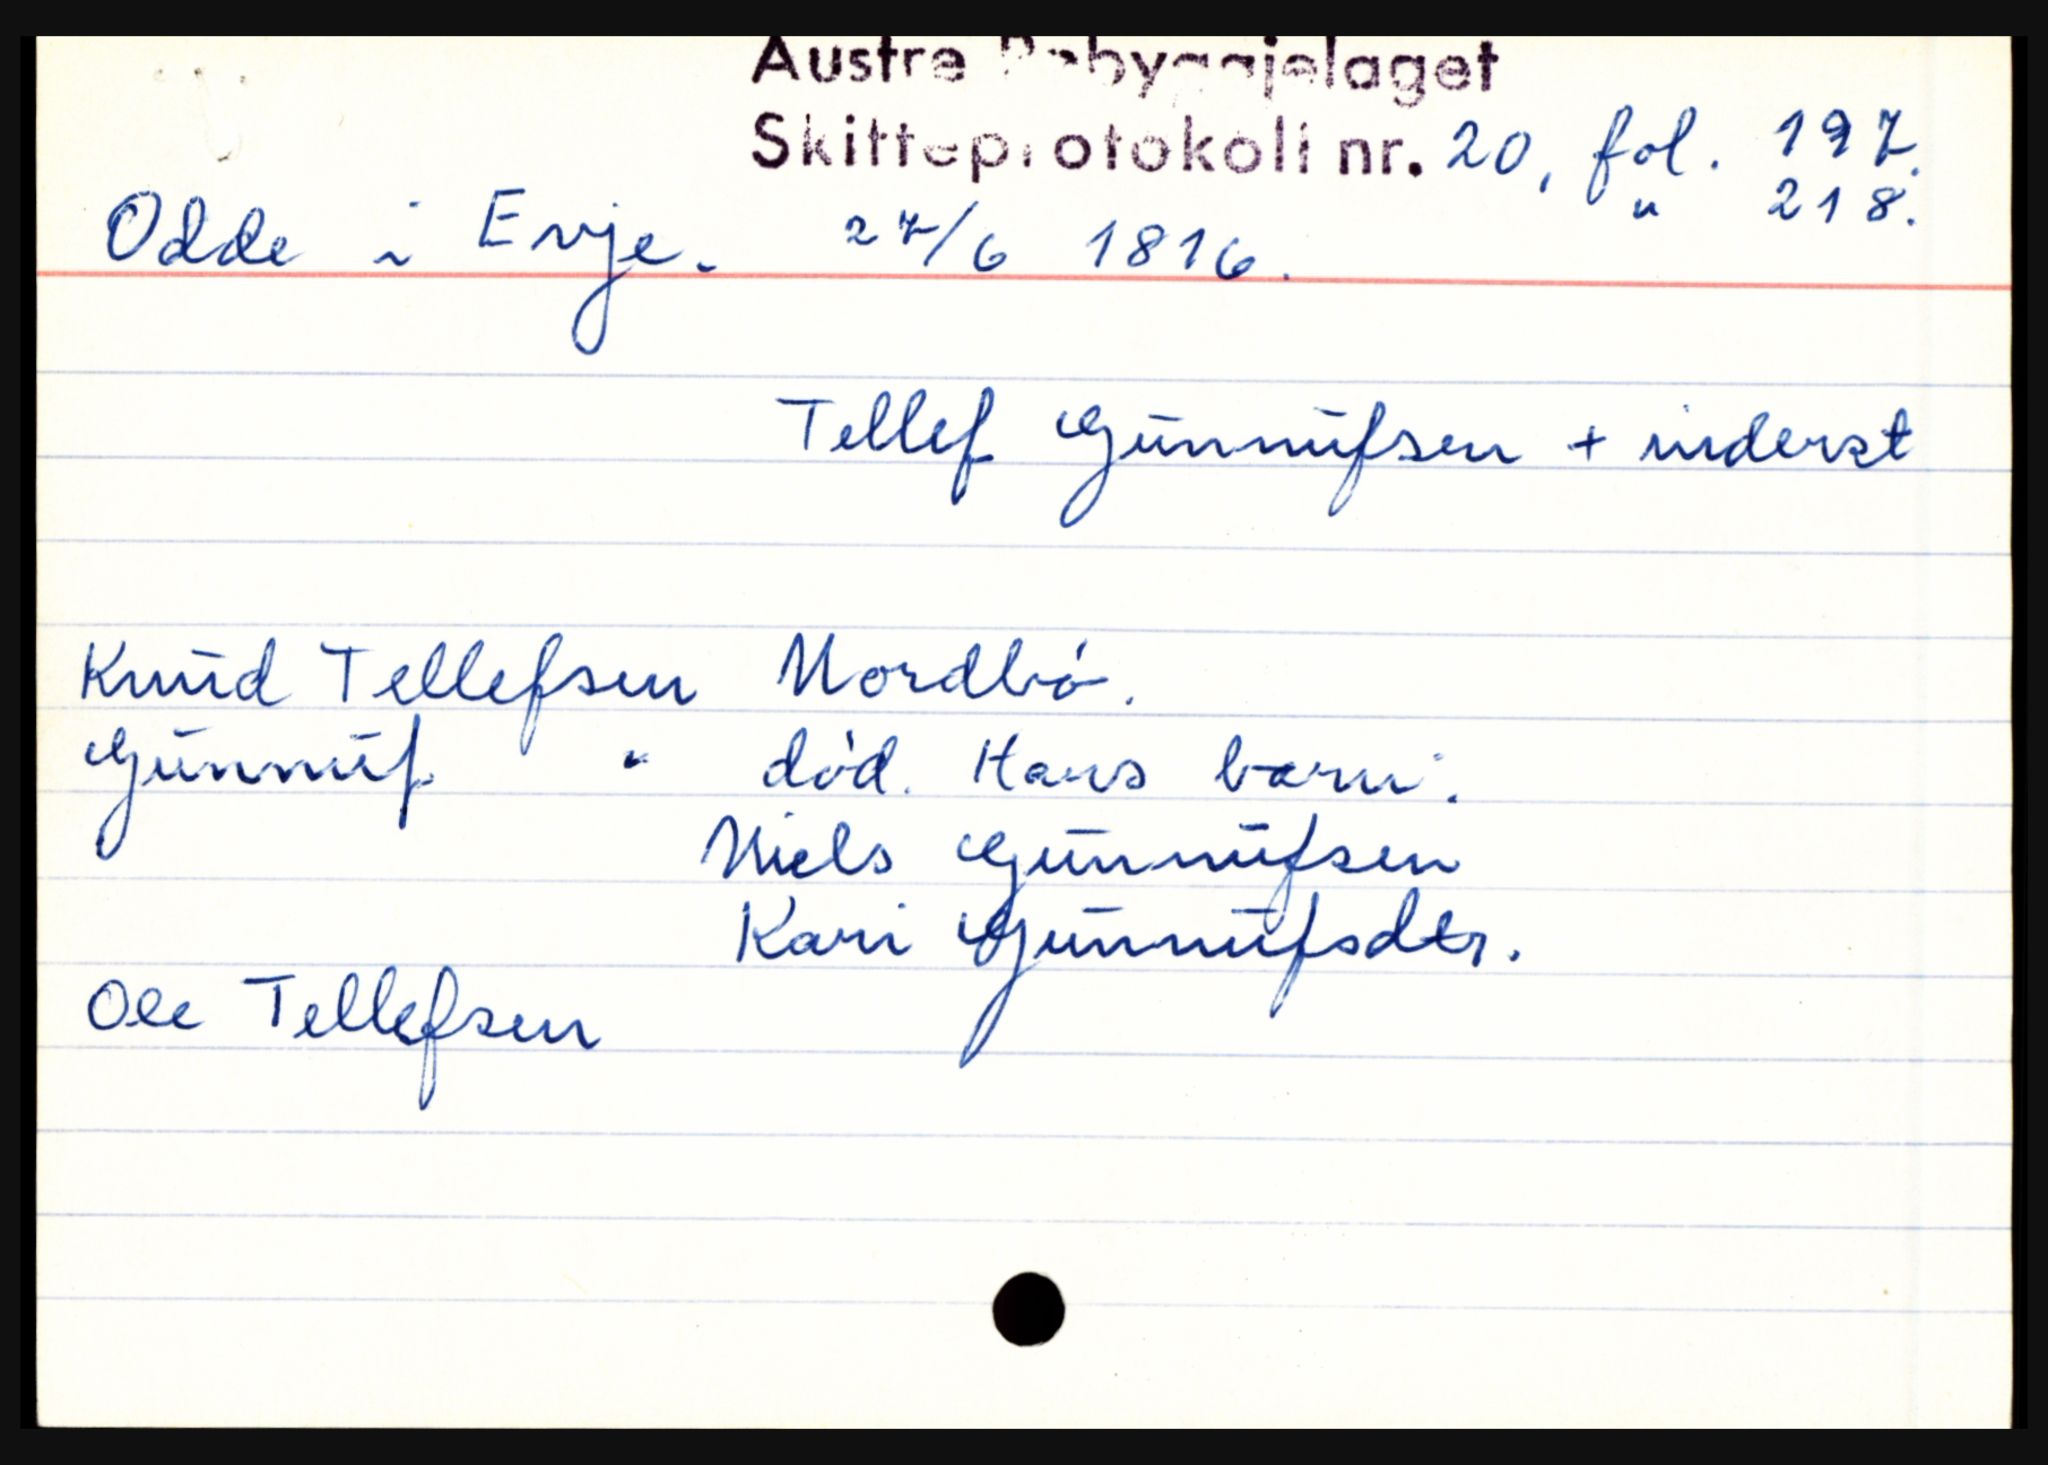 Austre Robyggjelaget
Skifteprotokoll nr. 20, fol. 197.
" 218.
Odde i Evje. 27/6 1816.
Tellef Gunnufsen + inderst
Knud Tellefsen Nordbö.
Gunnuf " död. Hans barn:
Niels Gunnufsen
Kari Gunnufsdtr.
Ole Tellefsen